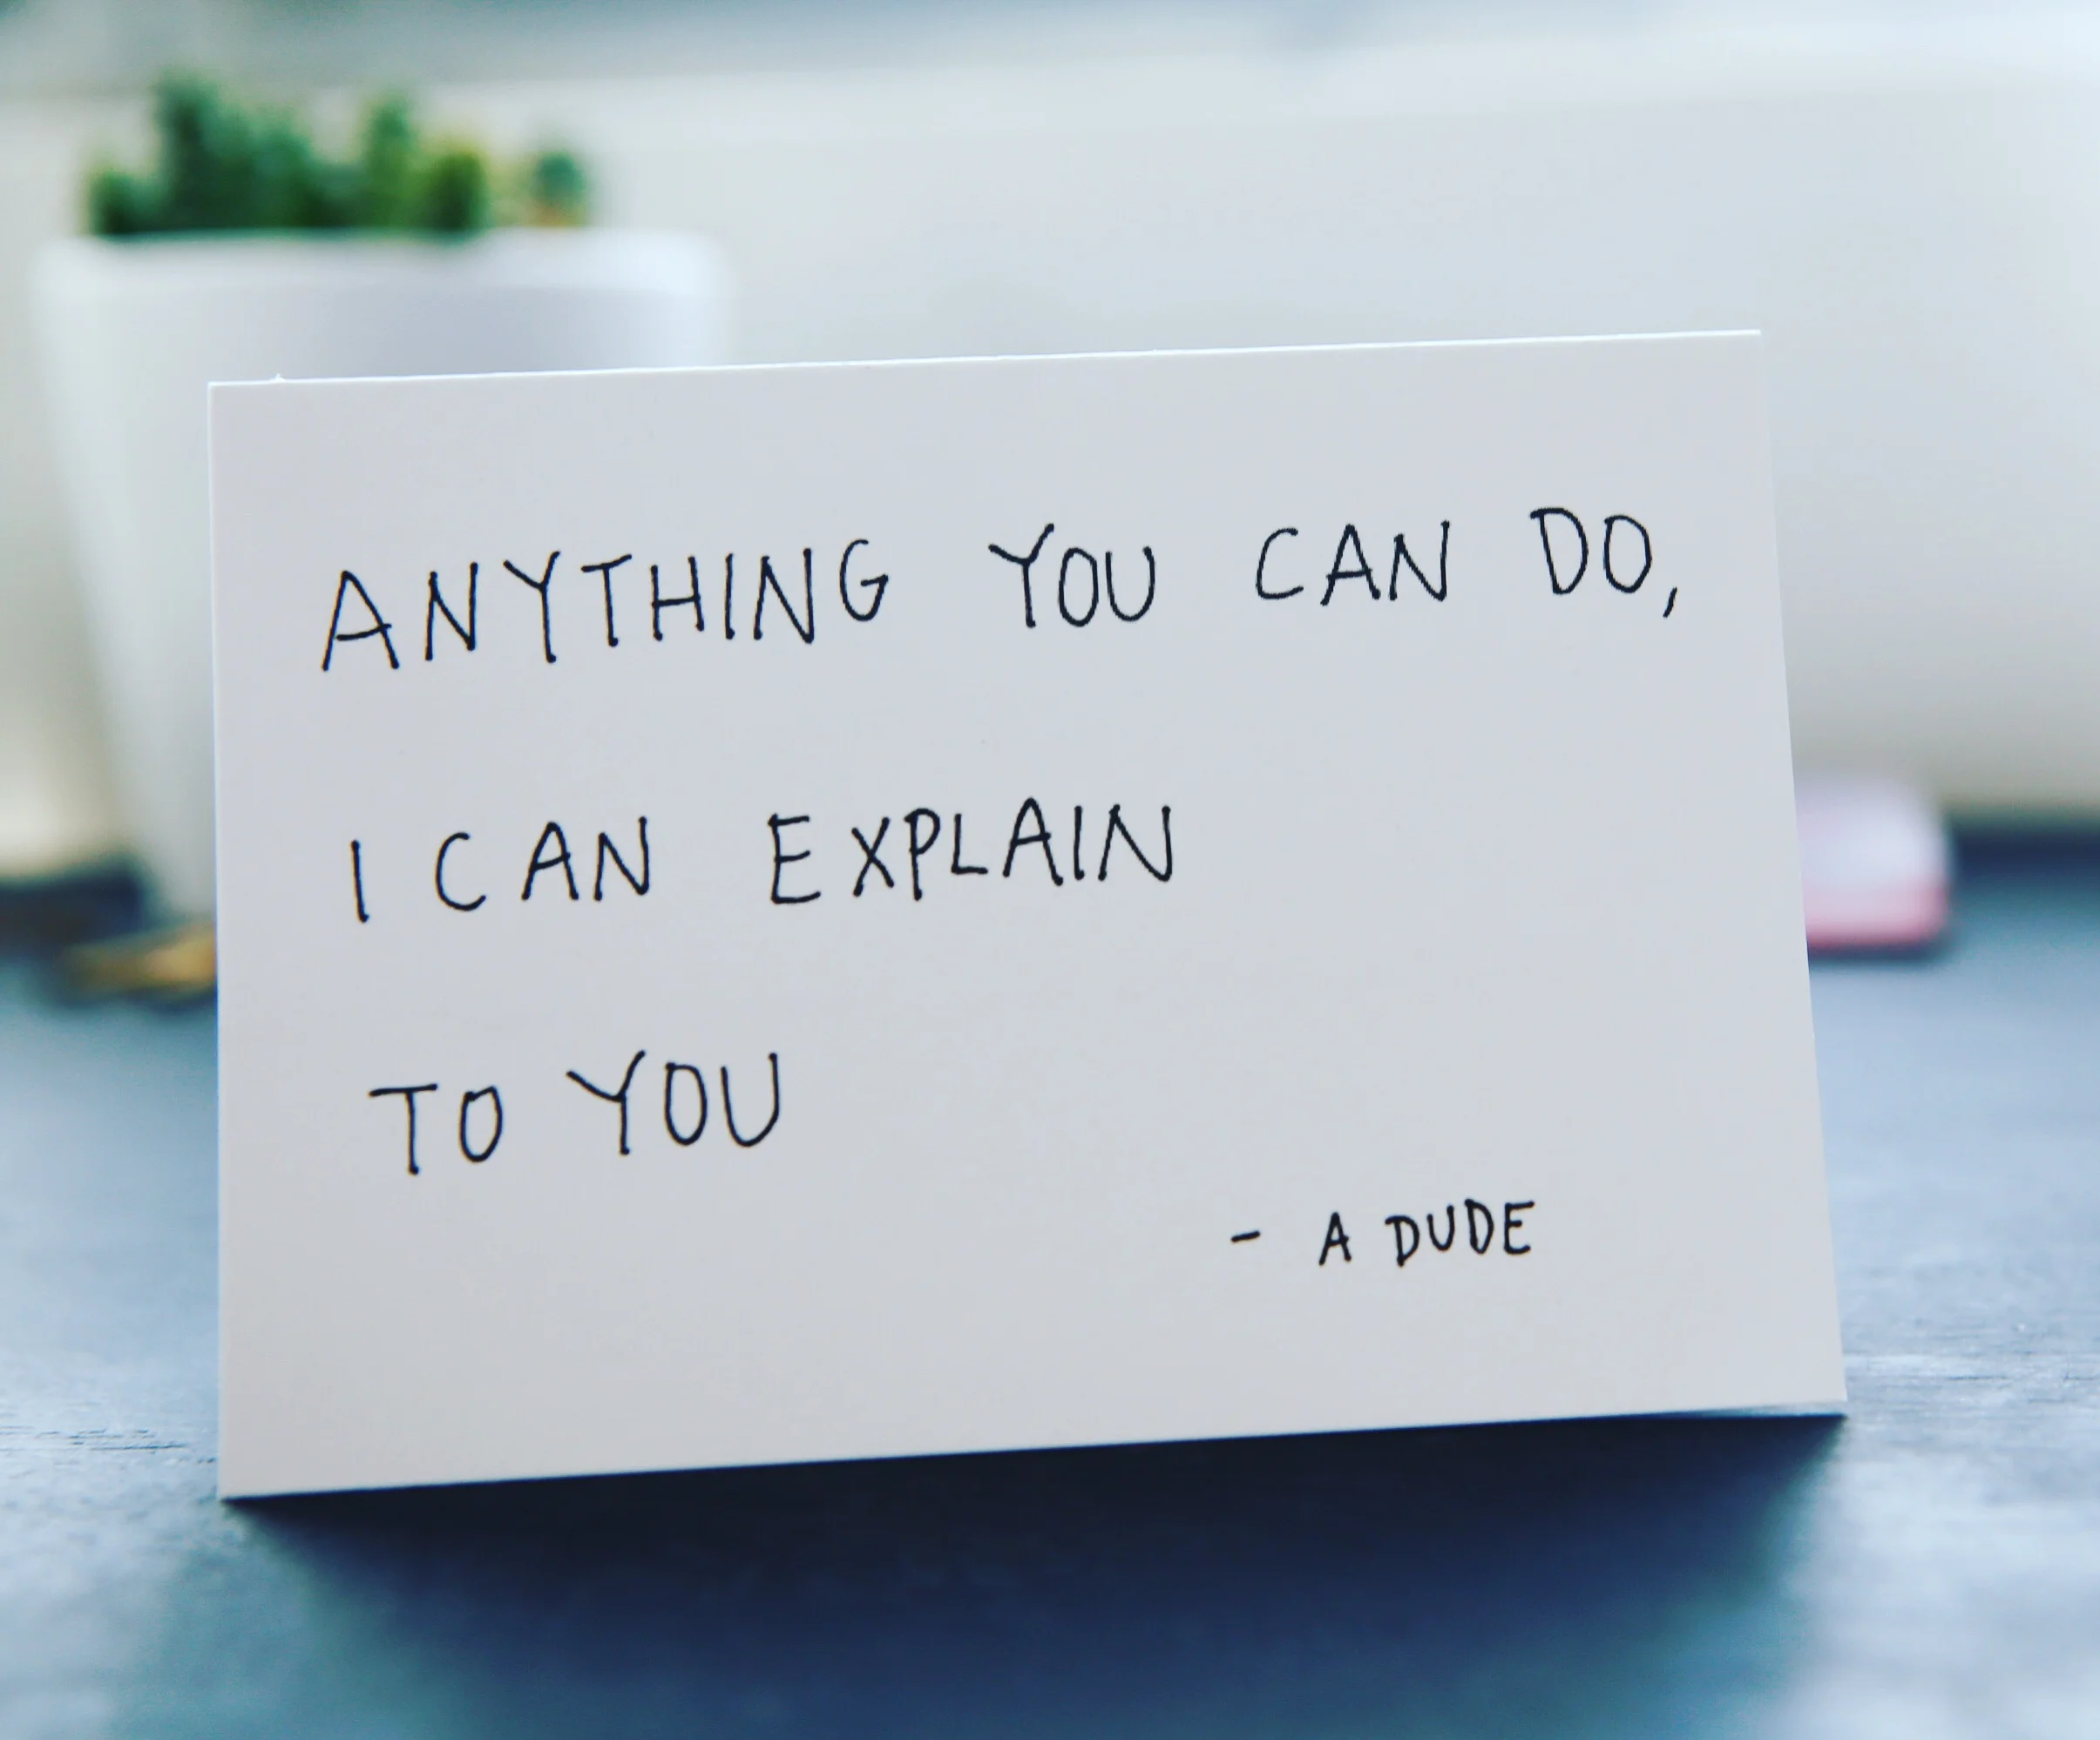 ANYTHING YOU CAN DO,
I CAN EXPLAIN
TO YOU
- A DUDE